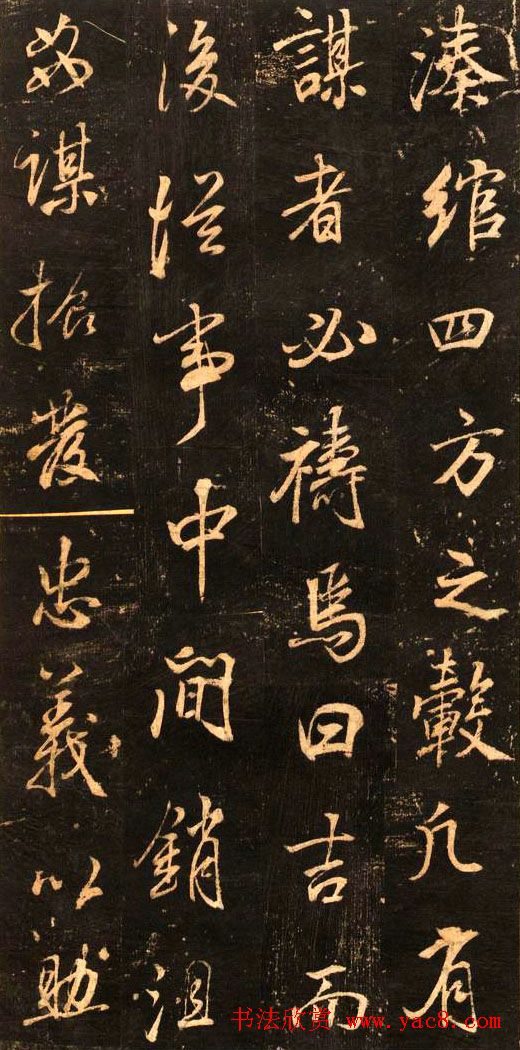 湊綰四方之轂凡有
謀者必禱焉曰吉而
後從事中間銷沮
姦謀振發忠義以助
书法欣赏 www.yac8.com